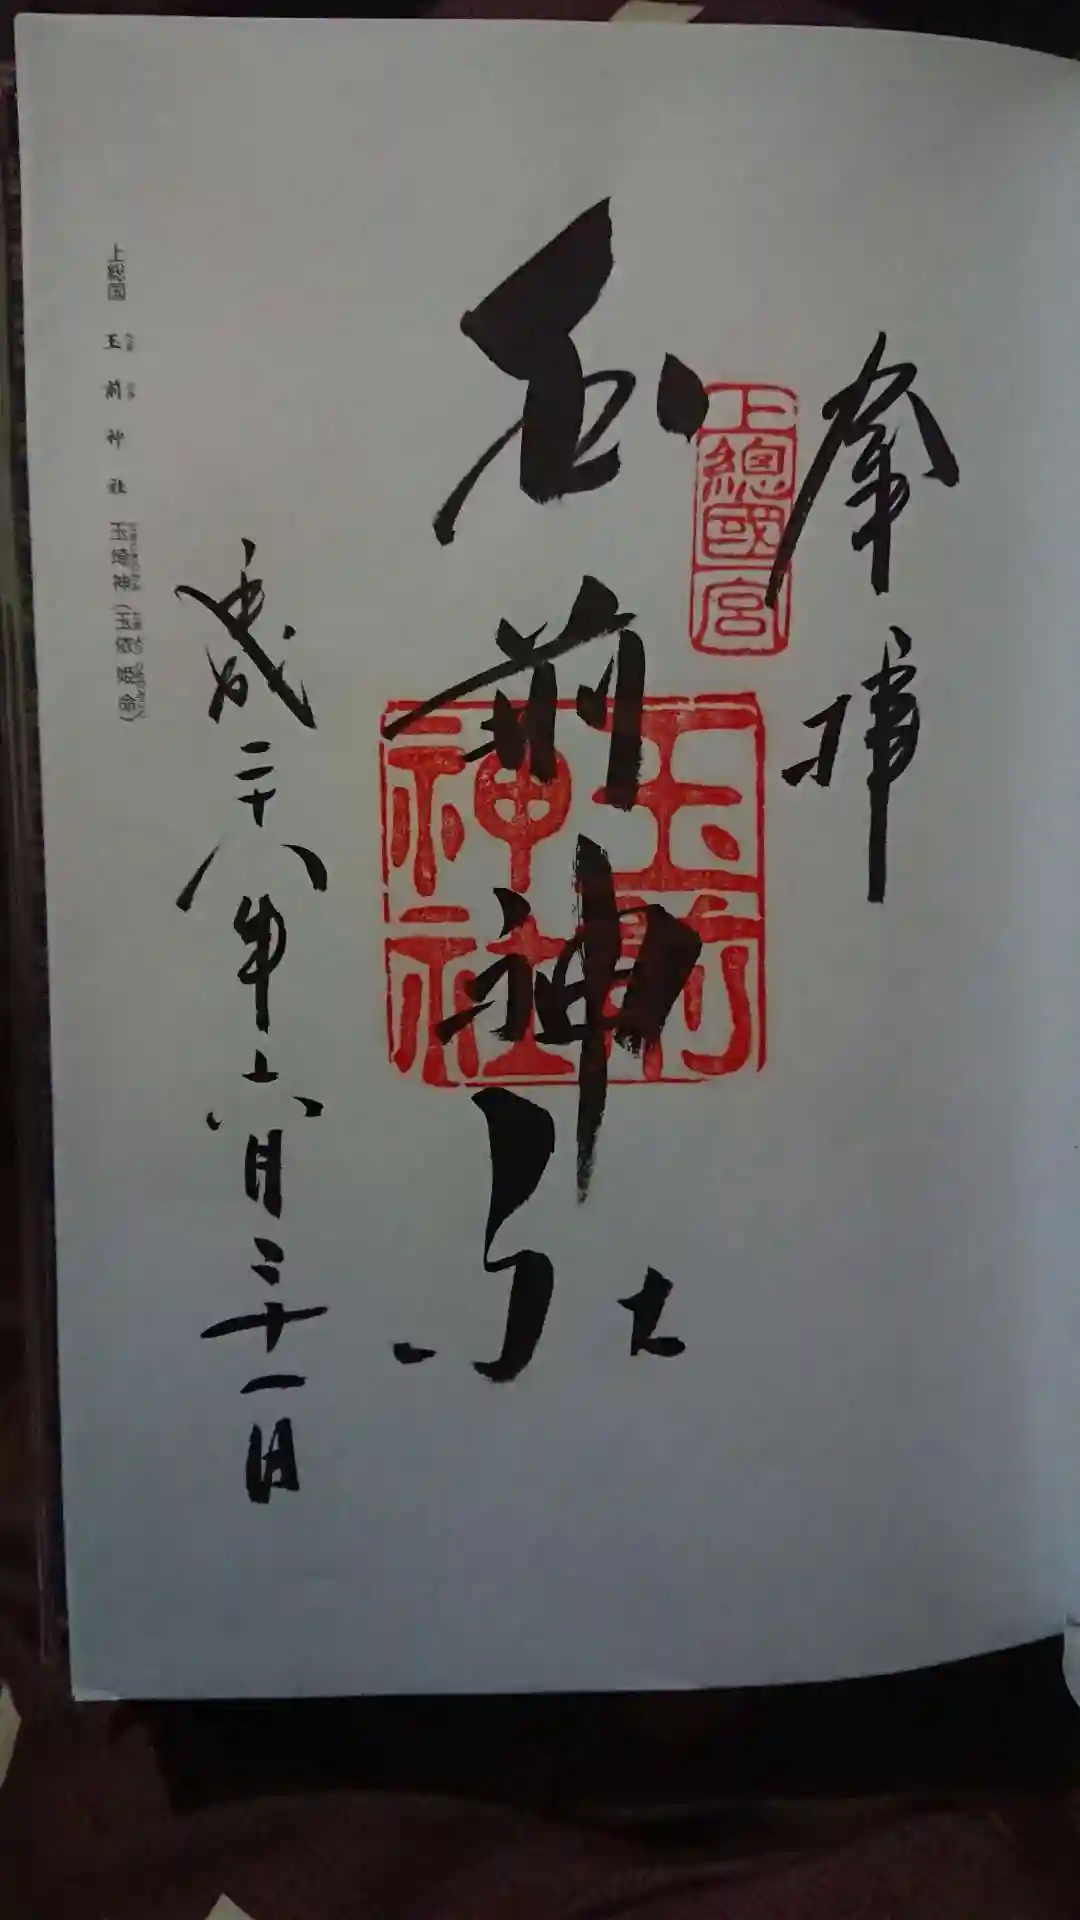 奉拝
上總國一宮
玉前神社
玉前神社
平成二十八年六月二十一日
上総国 玉前神社 玉埼神(玉依姫命)